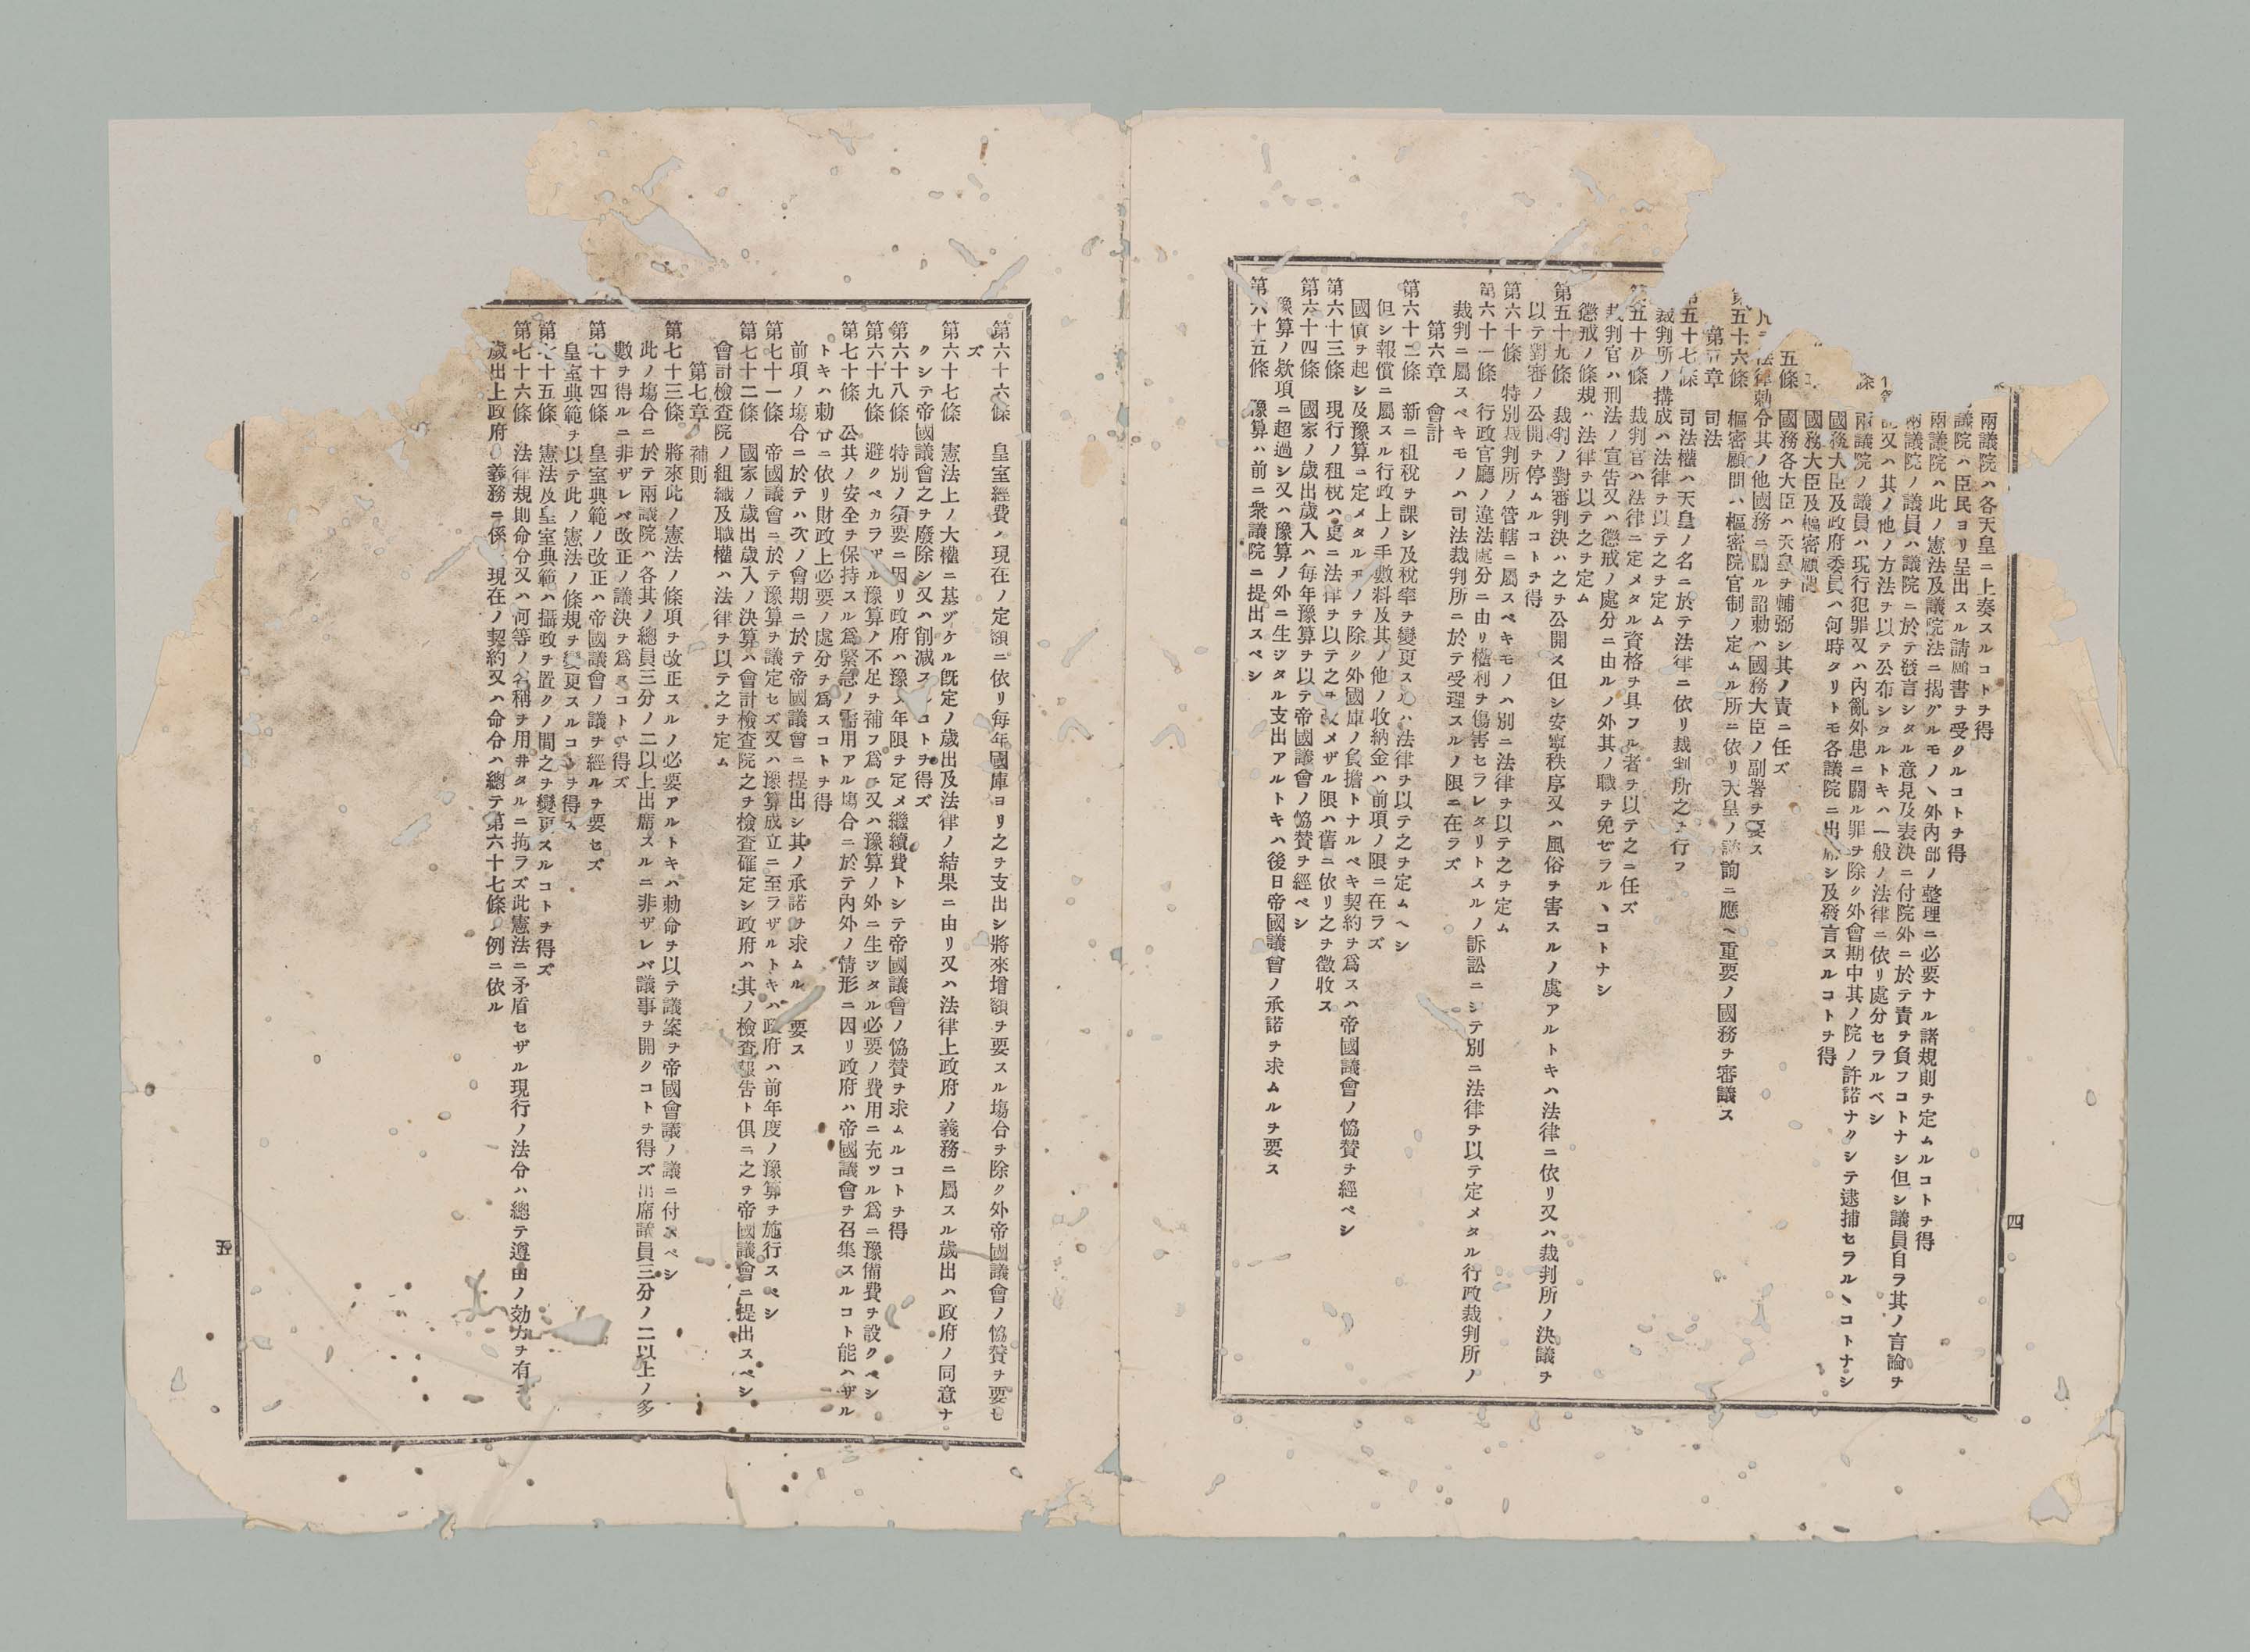 兩議院ハ各天皇ニ上奏スルコトヲ得
議院ハ臣民ヨリ呈出スル請願書ヲ受クルコトヲ得
兩議院ハ此ノ憲法及議院法ニ揭グルモノヽ外內部ノ整理ニ必要ナル諸規則ヲ定ムルコトヲ得
兩議院ノ議員ハ議院ニ於テ發言シタル意見及表決ニ付院外ニ於テ責ヲ負フコトナシ但シ議員自ラ其ノ言論ヲ
又ハ其ノ他ノ方法ヲ以テ公布シタルトキハ一般ノ法律ニ依リ處分セラルベシ
條 兩議院ノ議員ハ現行犯罪又ハ內亂外患ニ關ル罪ヲ除ク外會期中其ノ院ノ許諾ナクシテ逮捕セラルヽコトナシ
國務大臣及政府委員ハ何時タリトモ各議院ニ出席シ及發言スルコトヲ得
國務大臣及樞密顧問
五條 國務各大臣ハ天皇ヲ輔弼シ其ノ責ニ任ズ
凡テ法律勅令其ノ他國務ニ關ル詔勅ハ國務大臣ノ副署ヲ要ス
第五十六條 樞密顧問ハ樞密院官制ノ定ムル所ニ依リ天皇ノ諮詢ニ應ヘ重要ノ國務ヲ審議ス
第五章 司法
第五十七條 司法權ハ天皇ノ名ニ於テ法律ニ依リ裁判所之ヲ行フ
裁判所ノ搆成ハ法律ヲ以テ之ヲ定ム
第五十八條 裁判官ハ法律ニ定メタル資格ヲ具フル者ヲ以テ之ニ任ズ
裁判官ハ刑法ノ宣告又ハ懲戒ノ處分ニ由ルノ外其ノ職ヲ免ゼラルヽコトナシ
懲戒ノ條規ハ法律ヲ以テ之ヲ定ム
第五十九條 裁判ノ對審判決ハ之ヲ公開ス但シ安寧秩序又ハ風俗ヲ害スルノ虞アルトキハ法律ニ依リ又ハ裁判所ノ決議ヲ
以テ對審ノ公開ヲ停ムルコトヲ得
第六十條 特別裁判所ノ管轄ニ屬スベキモノハ別ニ法律ヲ以テ之ヲ定ム
第六十一條 行政官廳ノ違法處分ニ由リ權利ヲ傷害セラレタリトスルノ訴訟ニシテ別ニ法律ヲ以テ定メタル行政裁判所ノ
裁判ニ屬スベキモノハ司法裁判所ニ於テ受理スルノ限ニ在ラズ
第六章 會計
第六十二條 新ニ租稅ヲ課シ及稅率ヲ變更スルハ法律ヲ以テ之ヲ定ムヘシ
但シ報償ニ屬スル行政上ノ手數料及其ノ他ノ收納金ハ前項ノ限ニ在ラズ
國債ヲ起シ及豫算ニ定メタルモノヲ除ク外國庫ノ負擔トナルベキ契約ヲ爲スハ帝國議會ノ協賛ヲ經ベシ
第六十三條 現行ノ租稅ハ更ニ法律ヲ以テ之ヲ改メザル限ハ舊ニ依リ之ヲ徵收ス
第六十四條 國家ノ歲出歲入ハ每年豫算ヲ以テ帝國議會ノ協賛ヲ經ベシ
豫算ノ欵項ニ超過シ又ハ豫算ノ外ニ生ジタル支出アルトキハ後日帝國議會ノ承諾ヲ求ムルヲ要ス
第六十五條 豫算ハ前ニ衆議院ニ提出スベシ
四
第六十六條 皇室經費ハ現在ノ定額ニ依リ每年國庫ヨリ之ヲ支出シ將來增額ヲ要スル塲合ヲ除ク外帝國議會ノ協賛ヲ要セ
ズ
第六十七條 憲法上ノ大權ニ基ヅケル旣定ノ歲出及法律ノ結果ニ由リ又ハ法律上政府ノ義務ニ屬スル歲出ハ政府ノ同意ナ
クシテ帝國議會之ヲ廢除シ又ハ削減スルコトヲ得ズ
第六十八條 特別ノ須要ニ因リ政府ハ豫メ年限ヲ定メ繼續費トシテ帝國議會ノ協賛ヲ求ムルコトヲ得
第六十九條 避クベカラザル豫算ノ不足ヲ補フ爲ニ又ハ豫算ノ外ニ生ジタル必要ノ費用ニ充ツル爲ニ豫備費ヲ設クベシ
第七十條 公共ノ安全ヲ保持スル爲緊急ノ需用アル塲合ニ於テ內外ノ情形ニ因リ政府ハ帝國議會ヲ召集スルコト能ハザル
トキハ勅令ニ依リ財政上必要ノ處分ヲ爲スコトヲ得
前項ノ塲合ニ於テハ次ノ會期ニ於テ帝國議會ニ提出シ其ノ承諾ヲ求ムルヲ要ス
第七十一條 帝國議會ニ於テ豫算ヲ議定セズ又ハ豫算成立ニ至ラザルトキハ政府ハ前年度ノ豫算ヲ施行スベシ
第七十二條 國家ノ歲出歲入ノ決算ハ會計檢査院之ヲ檢査確定シ政府ハ其ノ檢査報告ト俱ニ之ヲ帝國議會ニ提出スベシ
會計檢査院ノ組織及職權ハ法律ヲ以テ之ヲ定ム
第七章 補則
第七十三條 將來此ノ憲法ノ條項ヲ改正スルノ必要アルトキハ勅命ヲ以テ議案ヲ帝國會議ノ議ニ付スベシ
此ノ塲合ニ於テ兩議院ハ各其ノ總員三分ノ二以上出席スルニ非ザレバ議事ヲ開クコトヲ得ズ出席議員三分ノ二以上ノ多
數ヲ得ルニ非ザレバ改正ノ議決ヲ爲スコトヲ得ズ
第七十四條 皇室典範ノ改正ハ帝國議會ノ議ヲ經ルヲ要セズ
皇室典範ヲ以テ此ノ憲法ノ條規ヲ變更スルコトヲ得ズ
第七十五條 憲法及皇室典範ハ攝政ヲ置クノ間之ヲ變更スルコトヲ得ズ
第七十六條 法律規則命令又ハ何等ノ名稱ヲ用井タルニ拘ラズ此憲法ニ矛盾セザル現行ノ法令ハ總テ遵由ノ効力ヲ有ス
歲出上政府ノ義務ニ係ル現在ノ契約又ハ命令ハ總テ第六十七條ノ例ニ依ル
五